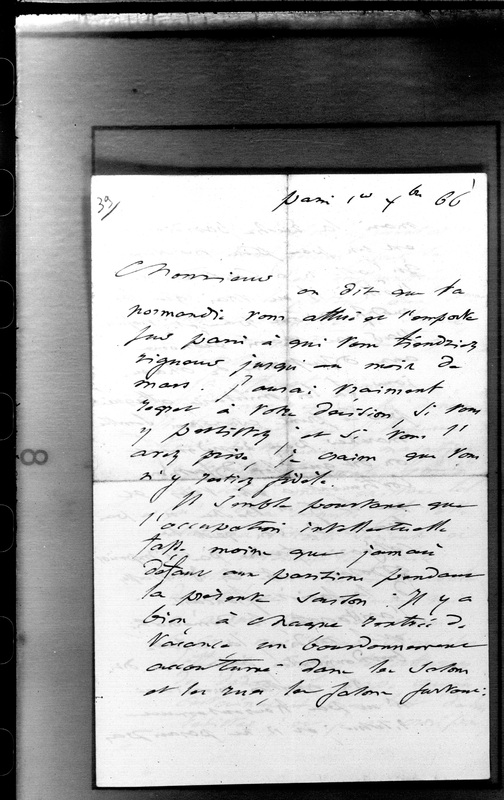 39)
paris 1er xbre 66
Monsieur
on dit que la
normandie vous attire et l'emporte
sur paris à qui vous tiendriez
rigueur jusqu'au mois de
mars. j'aurai vraiment
regret à votre décision, si vous
y persistez; et si vous l'
avez prise, je crains que vous
n'y restiez fidèle.
Il semble pourtant que
l'occupation intellectuelle
fasse moins que jamais
défaut aux parisiens pendant
la présente saison. Il y a
bien à chaque rentrée de
vacances un bourdonnement
accoutumé dans les salons
et les rues, les salons surtout.
8